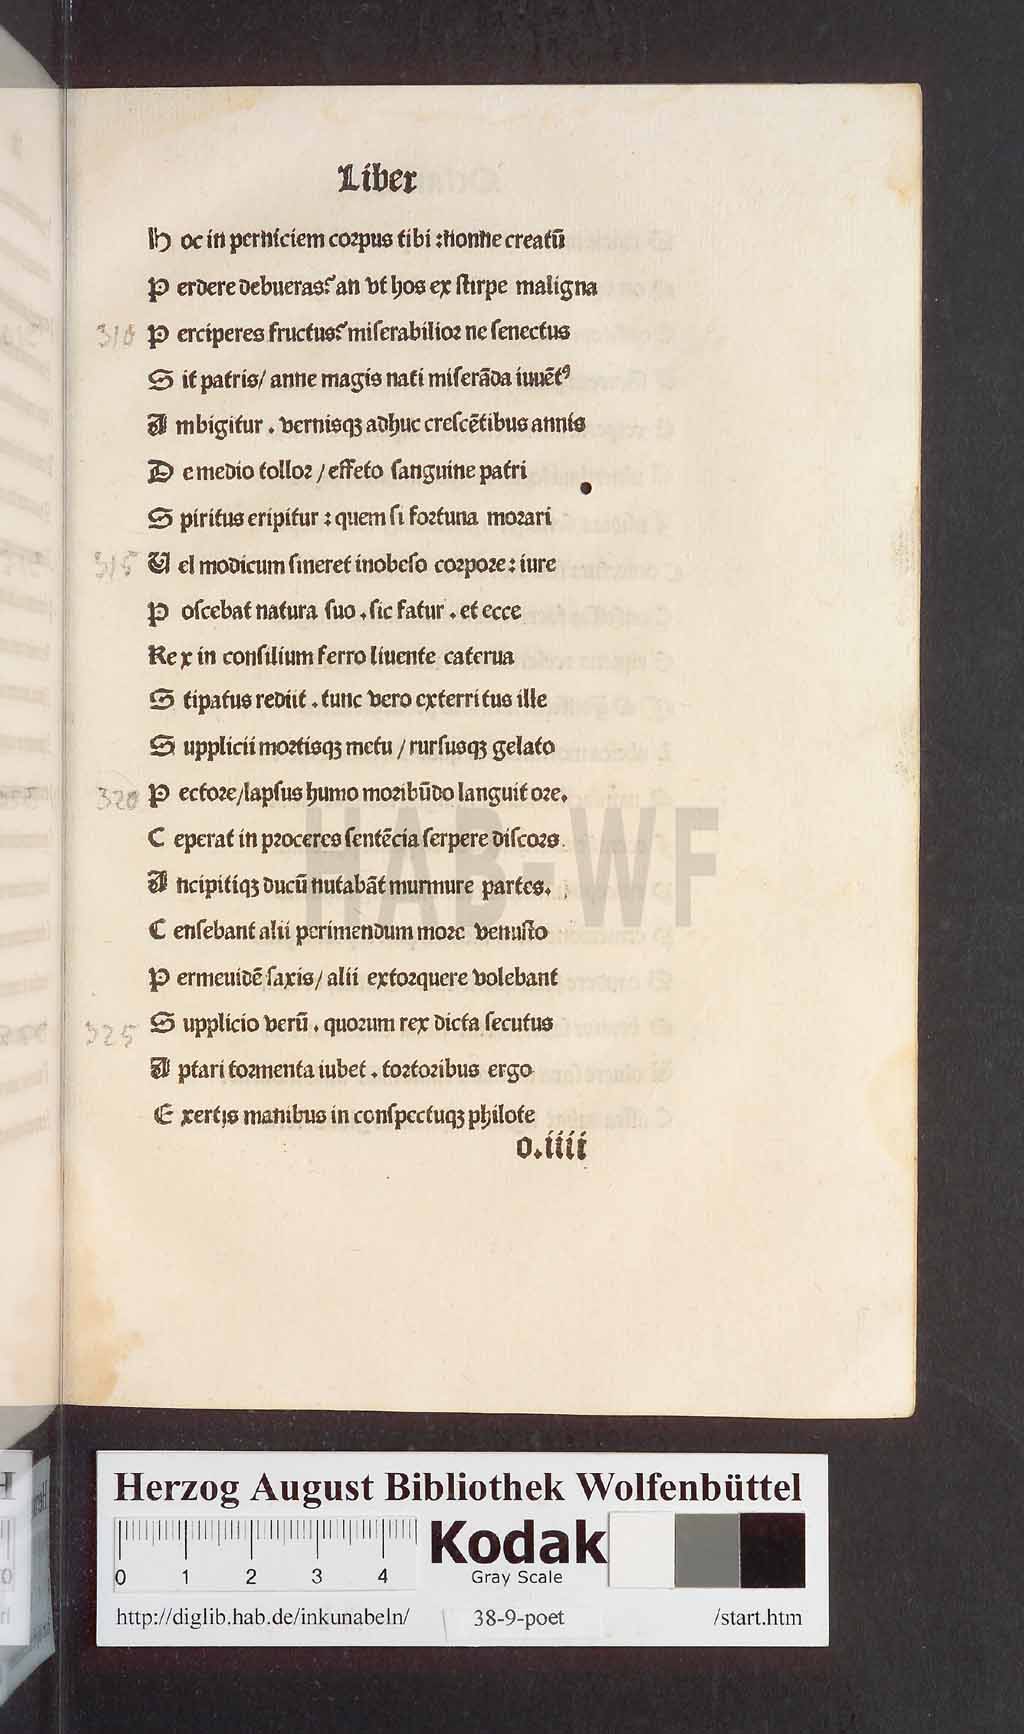 Liber
H oc in perniciem corpus tibi :nonne creatū
P erdere debueras? an vt hos ex stirpe maligna
310 P erciperes fructus? miserabilior ne senectus
S it patris/ anne magis nati miserāda iuuētꝰ
A mbigitur . vernisqꝫ adhuc crescētibus annis
D e medio tollor / effeto sanguine patri
S piritus eripitur : quem si fortuna morari
315 U el modicum sineret inobeso corpore: iure
P oscebat natura suo . sic fatur . et ecce
Rex in consilium ferro liuente caterua
S tipatus rediit . tunc vero exterritus ille
S upplicii mortisqꝫ metu / rursusqꝫ gelato
320 P ectore/lapsus humo moribūdo languit ore.
C eperat in proceres sentēcia serpere discors.
A ncipitiqꝫ ducū nutabāt murmure partes.
C ensebant alii perimendum more venusto
P ermeuidē saxis/ alii extorquere volebant
325 S upplicio verū . quorum rex dicta secutus
A ptari tormenta iubet . tortoribus ergo
E xertis manibus in conspectuqꝫ philote
o.iiii
HAB-WF
Herzog August Bibliothek Wolfenbüttel
0 1 2 3 4
Kodak
Gray Scale
http://diglib.hab.de/inkunabeln/ 38-9-poet /start.htm